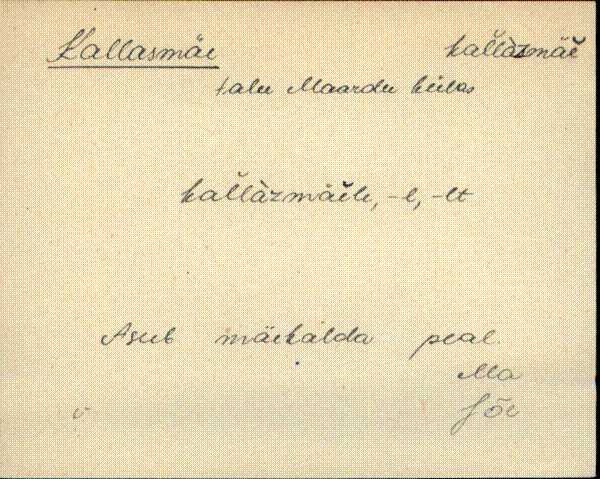 Kallasmäe kall̆àzmäĕ
talu Maardu külas
kall̆àzmäĕle, -l, -lt
Asub mäekalda peal.
Ma
Jõe